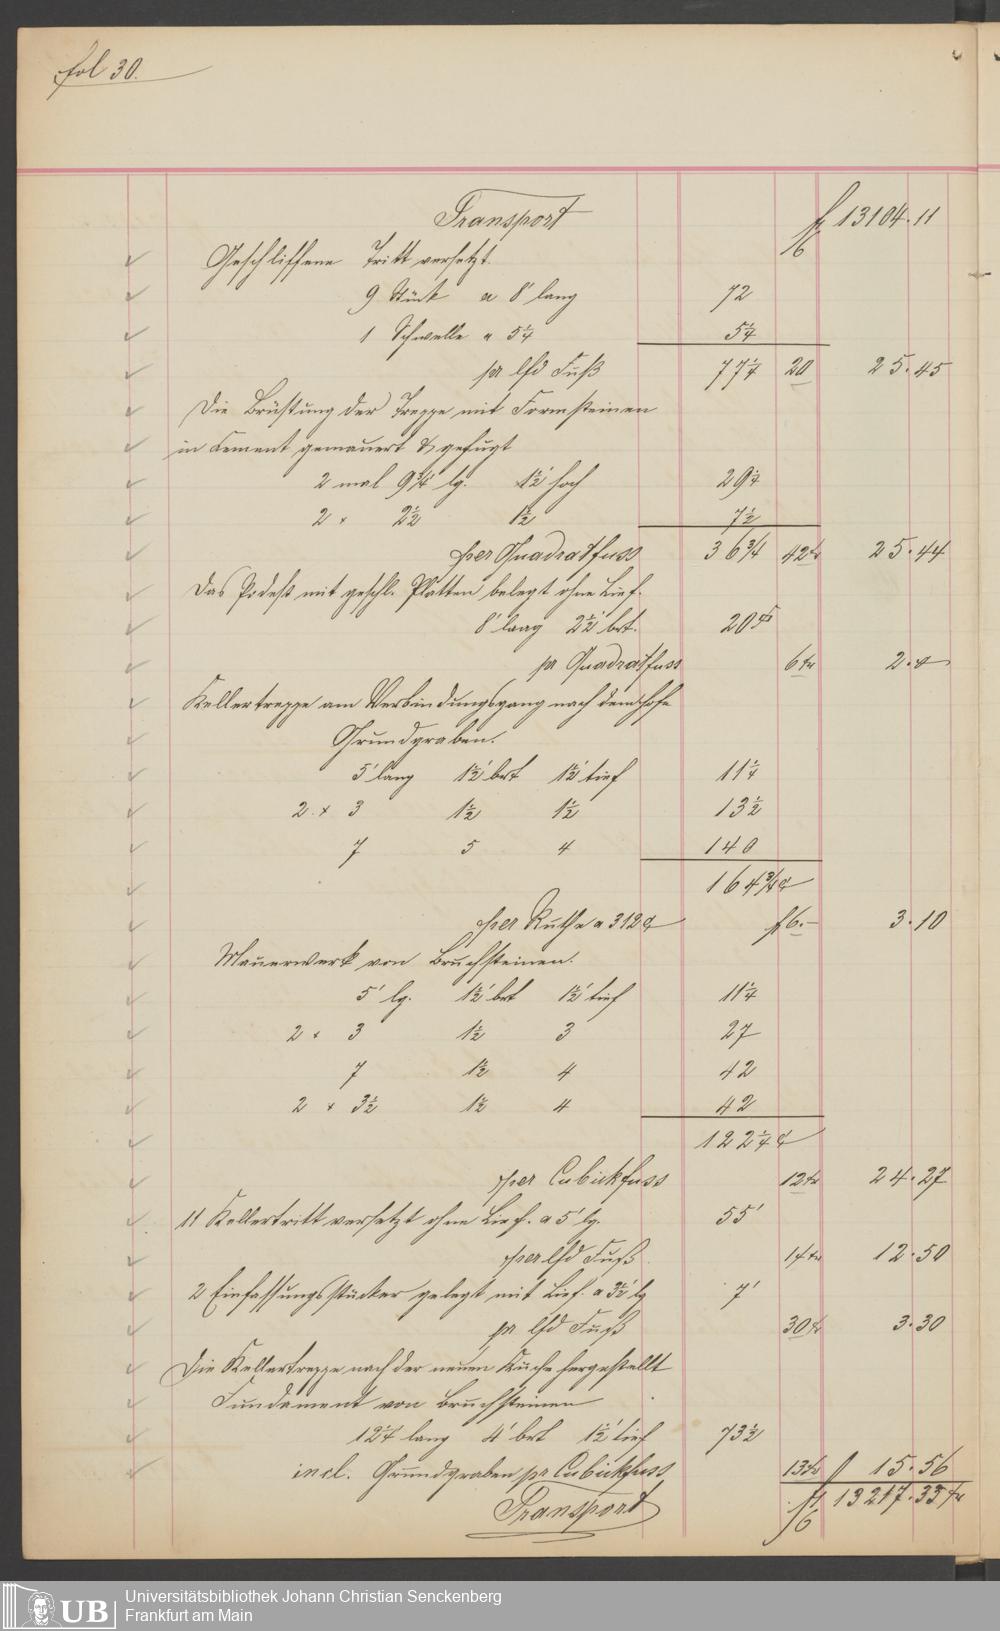 fol 30.
Transport fl 13104. 11
Geschliffene Tritt versetzt.
9 Stück a 8' lang 72
1 Schwelle " 5¼ 5¼
pr lfd Fuß 77¼ 20 25. 45
Die Brüstung der Treppe mit Formsteinen
in Cement gemauert & gefugt
2 mal 9¾' lg. 1½' hoch 29¼
2 × 2½ 1½ 7½
per Quadratfuss 36¾ 42kr 25. 44
Das Podest mit geschl. Platten belegt ohne Lief.
8' lang 2½' brt. 20
pr Quadratfuss 6kr 2. -
Kellertreppe am Verbindungsgang nach dem Hofe
Grundgraben.
5' lang 1½' brt 1½' tief 11¼
2 × 3 1½ 1½ 13½
7 5 4 140
164¾
per Ruthe a 312 f 6.- 3. 10
Mauerwerk von Bruchsteinen.
5' lg. 1½' brt 1½' tief 11¼
2 × 3 1½ 3 27
7 1½ 4 42
2 × 3½ 1½ 4 42
122¼
per Cubickfuss 12kr 24. 27
11 Kellertritt versetzt ohne Lief. a 5' lg. 55'
per lfd Fuß 14kr 12. 50
2 Einfassungsstücker gelegt mit Lief. a 3½' lg 7'
pr lfd Fuß 30kr 3. 30
Die Kellertreppe nach der neuen Küche hergestellt
Fundament von Bruchsteinen
12¼ lang 4' brt 1½' tief 73½
incl. Grundgraben pr Cubickfuss 13kr 15. 56
Transport fl 13217. 33 kr
Universitätsbibliothek Johann Christian Senckenberg
Frankfurt am Main
UB